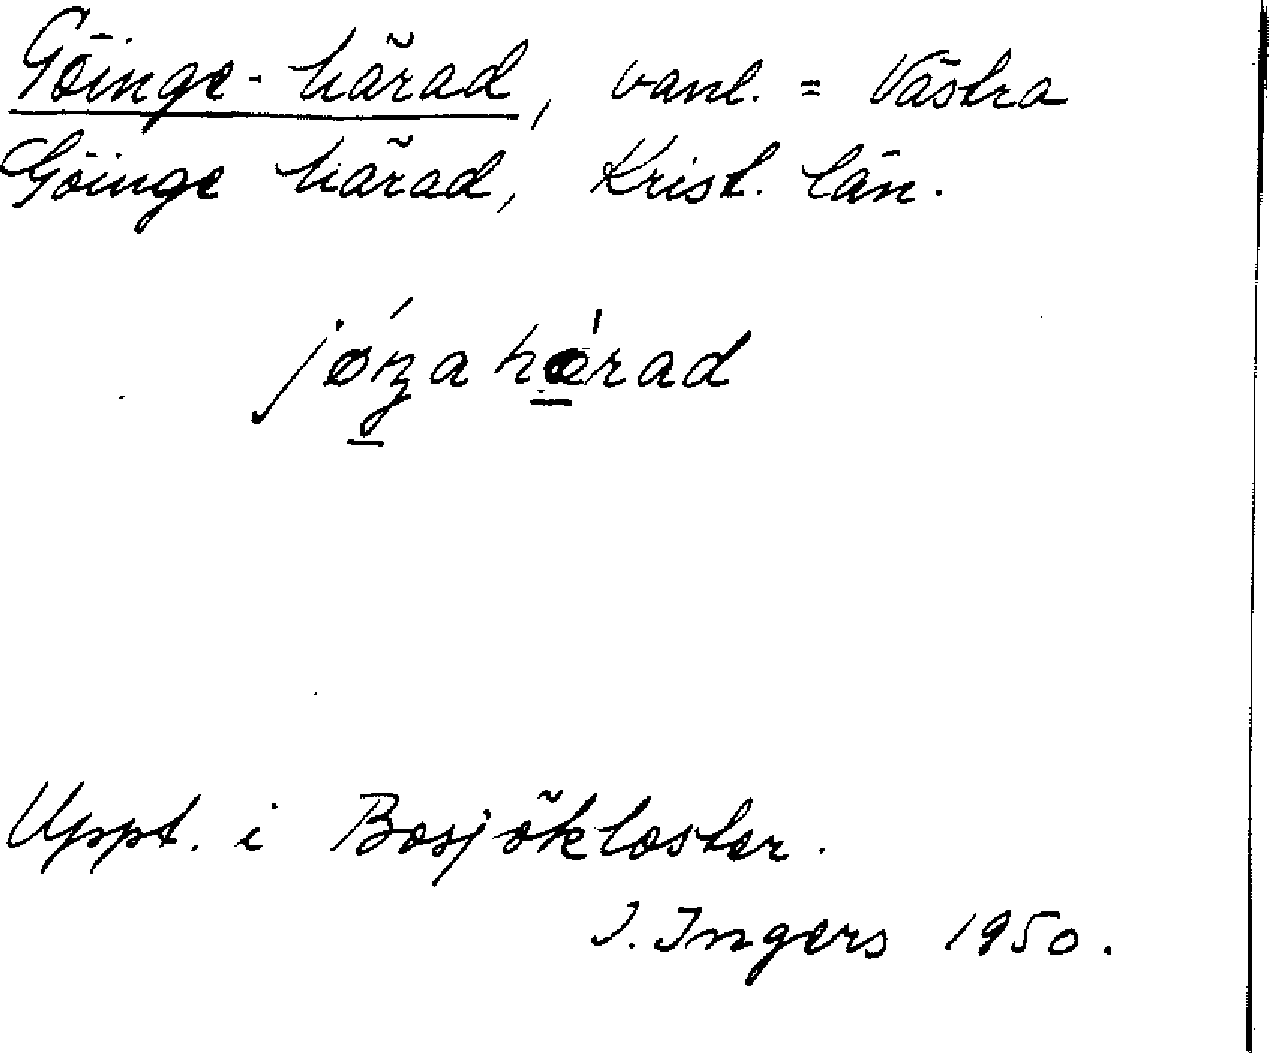 Göinge-härad, vanl. = Västra
Göinge härad, Krist. län.
Uppt. i Bosjökloster.
I. Ingers 1950.